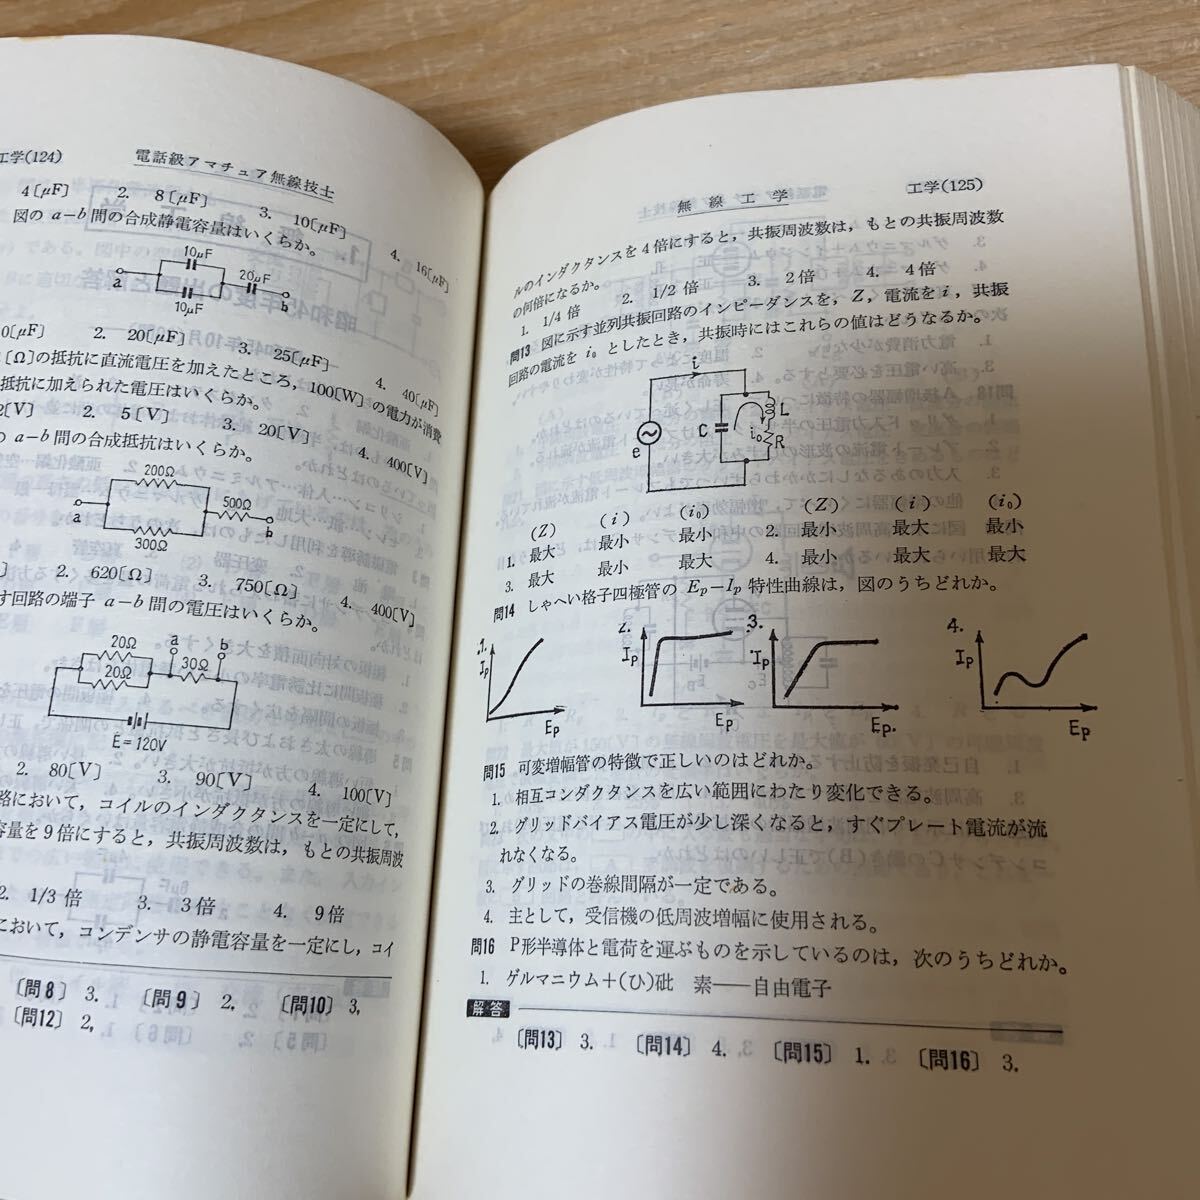 工学(124)
電話級アマチュア無線技士
4〔μF〕 2. 8〔μF〕 3. 10〔μF〕 4. 16〔μF〕
図の a−b 間の合成静電容量はいくらか。
10μF
20μF
a
b
10μF
0〔μF〕 2. 20〔μF〕 3. 25〔μF〕 4. 40〔μF〕
〔Ω〕の抵抗に直流電圧を加えたところ，100〔W〕の電力が消費
抵抗に加えられた電圧はいくらか。
2〔V〕 2. 5〔V〕 3. 20〔V〕 4. 400〔V〕
a−b 間の合成抵抗はいくらか。
200Ω
500Ω
a
b
300Ω
〕 2. 620〔Ω〕 3. 750〔Ω〕 4. 400〔V〕
す回路の端子 a−b 間の電圧はいくらか。
a b
20Ω
20Ω
30Ω
E=120V
2. 80〔V〕 3. 90〔V〕 4. 100〔V〕
路において，コイルのインダクタンスを一定にして，
容量を9倍にすると，共振周波数は，もとの共振周波
2. 1/3 倍 3. 3倍 4. 9倍
において，コンデンサの静電容量を一定にし，コイ
〔問8〕 3. 〔問9〕 2. 〔問10〕 3,
〔問12〕 2,
無線工学
工学(125)
ルのインダクタンスを4倍にすると，共振周波数は，もとの共振周波数
の何倍になるか。
1. 1/4 倍 2. 1/2 倍 3. 2倍 4. 4倍
問13 図に示す並列共振回路のインピーダンスを，Z，電流を i，共振
回路の電流を i₀ としたとき，共振時にはこれらの値はどうなるか。
i
L
C
i₀
R
e
(Z) (i) (i₀) (Z) (i) (i₀)
1. 最大 最小 最小 2. 最小 最大 最小
3. 最大 最小 最大 4. 最小 最大 最大
問14 しゃへい格子四極管の Ep−Ip 特性曲線は，図のうちどれか。
1. 2. 3. 4.
Ip Ip Ip Ip
Ep Ep Ep. Ep
問15 可変増幅管の特徴で正しいのはどれか。
1. 相互コンダクタンスを広い範囲にわたり変化できる。
2. グリッドバイアス電圧が少し深くなると，すぐプレート電流が流
れなくなる。
3. グリッドの巻線間隔が一定である。
4. 主として，受信機の低周波増幅に使用される。
問16 P形半導体と電荷を運ぶものを示しているのは，次のうちどれか。
1. ゲルマニウム＋(ひ)砒 素――自由電子
解答
〔問13〕 3. 〔問14〕 4. 〔問15〕 1. 〔問16〕 3.